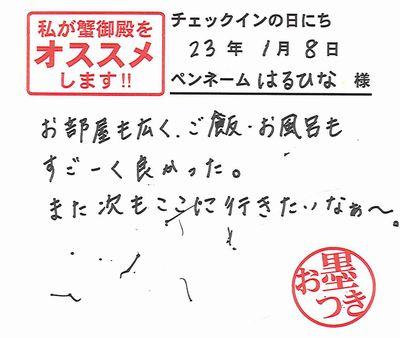 私が蟹御殿を
オススメ
します!!
チェックインの日にち
23年1月8日
ペンネーム はるひな 様
お部屋も広く、ご飯・お風呂も
すご〜く良かった。
また次もここに行きたいなぁ〜。
お墨つき